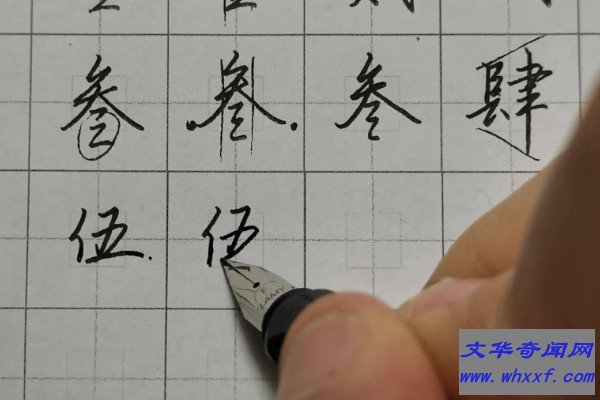 叁 叁 叁 肆
伍 伍
文华奇闻网
www.whxxf.com